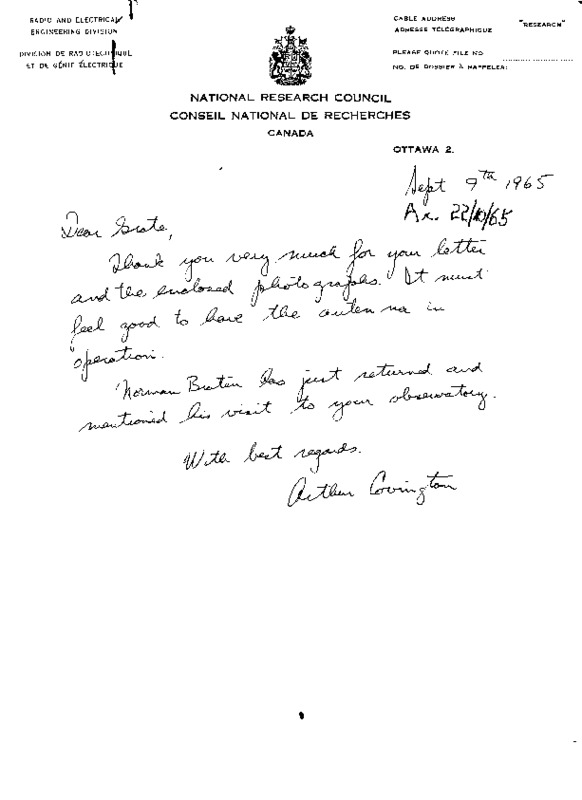 RADIO AND ELECTRICAL
ENGINEERING DIVISION
DIVISION DE RADIOTECHNIQUE
ET DE GÉNIE ÉLECTRIQUE
CABLE ADDRESS
ADRESSE TÉLÉGRAPHIQUE
"RESEARCH"
PLEASE QUOTE FILE NO.
NO. DE DOSSIER À RAPPELER:
NATIONAL RESEARCH COUNCIL
CONSEIL NATIONAL DE RECHERCHES
CANADA
OTTAWA 2.
Sept 9th 1965
22/10/65
Dear Grote,
Thank you very much for your letter
and the enclosed photographs. It must
feel good to have the antenna in
operation.
Norman Broten has just returned and
mentioned his visit to your observatory.
With best regards.
Arthur Covington